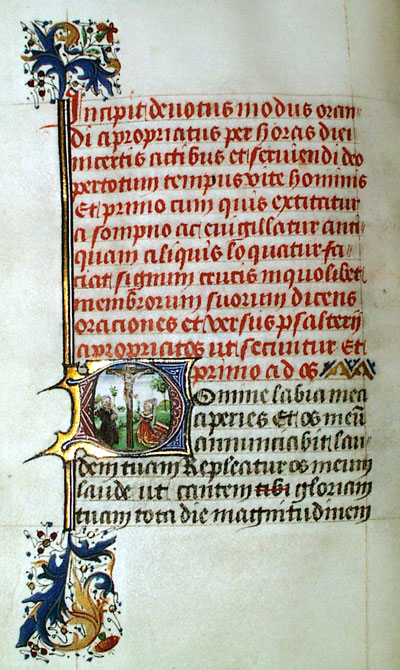 Incipit deuotus modus oran
di apropriatus per horas diei
in certis actibus et seruiendi deo
per totum tempus vite hominis
Et primo cum quis excitatur
a sompno ac euigillatur ant
quam aliquis loquatur fa
ciat signum crucis in quolibet
membrorum suorum dicens
oraciones et versus psalterii
apropriatos ut secuitur Et
primo ad os
Domine labia mea
aperies Et os meū
annunciabit lau
dem tuam Repleatur os meum
laude ut cantem tibi gloriam
tuam tota die magnitudinem